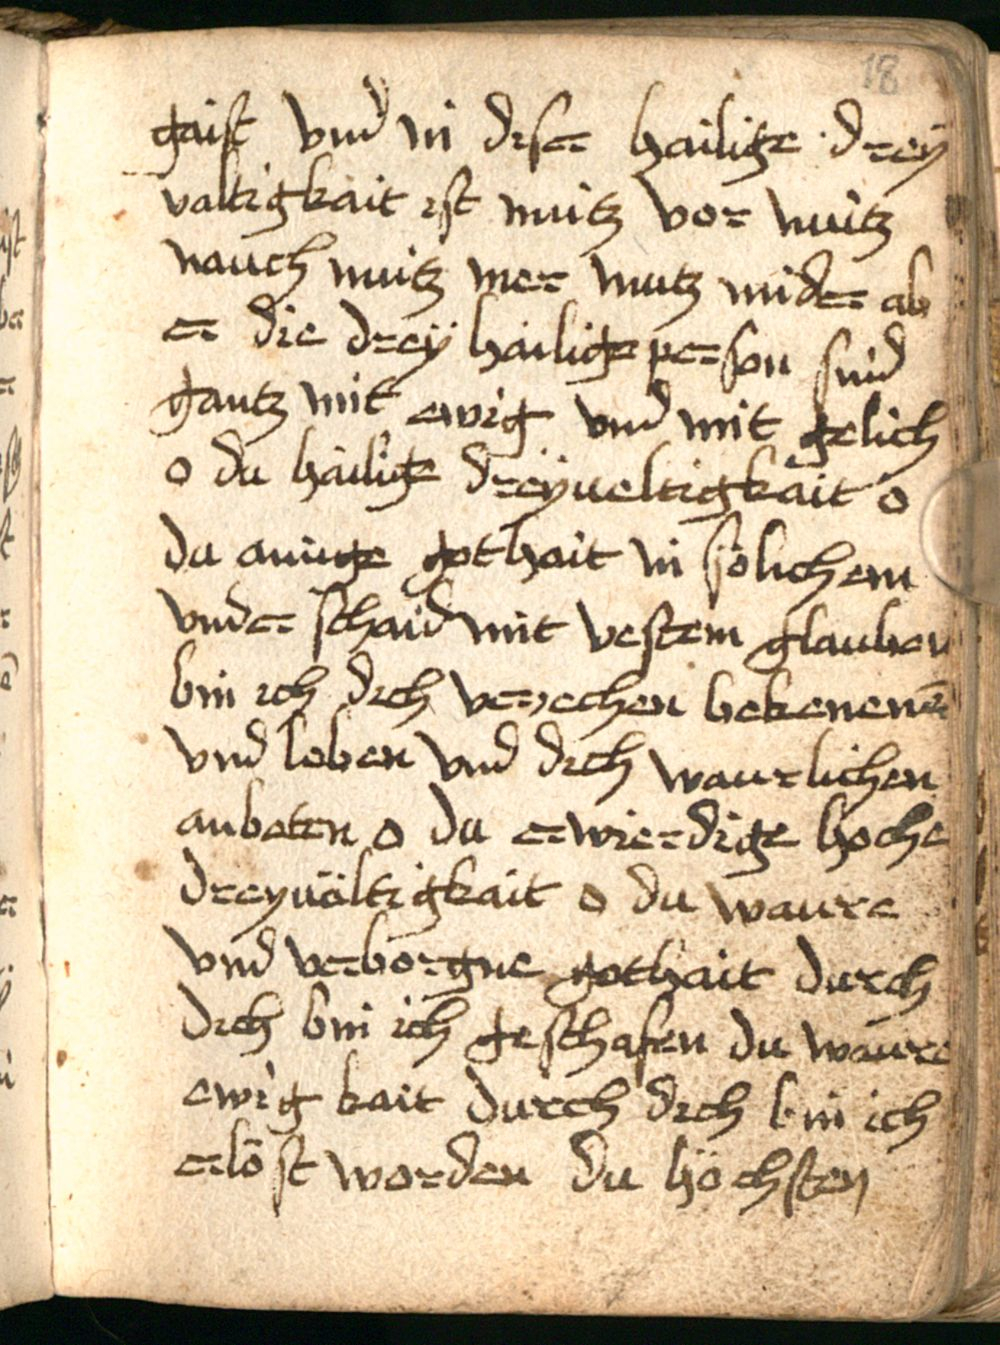 18
gaist vnd in diser hailige drey
valtigkait ist nuitz vor nuitz
nauch nuitz mer nuitz minder ab
er die dreÿ hailige person sind
gantz mit ewig vnd mit gelich
o du hailige dreÿueltigkait o
du ainige gothait in sölichem
vnder schaid mit vestem glauben
bin ich dich veriechen bekenenē
vnd loben vnd dich waurlichen
anbeten o du erwierdige hoche
dreyuältigkait o du waure
vnd verborgne gothait durch
dich bin ich geschafen du waure
ewig kait durch dich bin ich
erlöst worden du höchsten